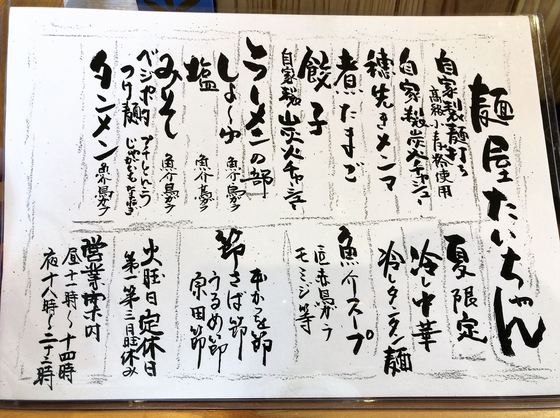 麺屋たいちゃん
自家製麺打ち
高級小麦粉使用
自家製炭火チャシュー
穂先きメンマ
煮たまご
餃子
自家製炭火チャシュー
ラーメンの部
しょーゆ 魚介鳥ガラ
塩 魚介鳥ガラ
みそ 魚介鳥ガラ
つけ麺
タンメン 魚介鳥ガラ
夏限定
冷し中華
冷しタンタン麺
魚介スープ
モミジ等
節
本かつを節
さば節
うるめ節
宗田節
火旺日定休日
第一第三月旺休み
営業案内
昼十一時〜十四時
夜十八時〜二十二時